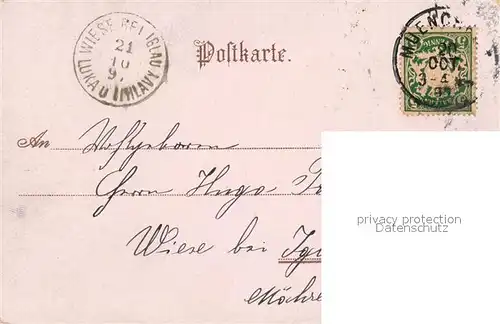 WIESE BEI IGLAU
21
10
9
LUKA U JIHLAVY
Postkarte.
MUENCH
20
OCT
3-4
An Wohlgeboren
Herrn Hugo
Wiese bei Ig
Mähre
privacy protection
Datenschutz